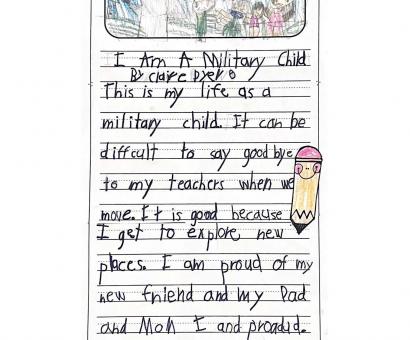 I Am A Military Child
By Claire Dyer 8
This is my life as a
military child. It can be
difficult to say goodbye
to my teachers when we
move. It is good because
I get to explore new
places. I am proud of my
new friend and my Dad
and Mom I and